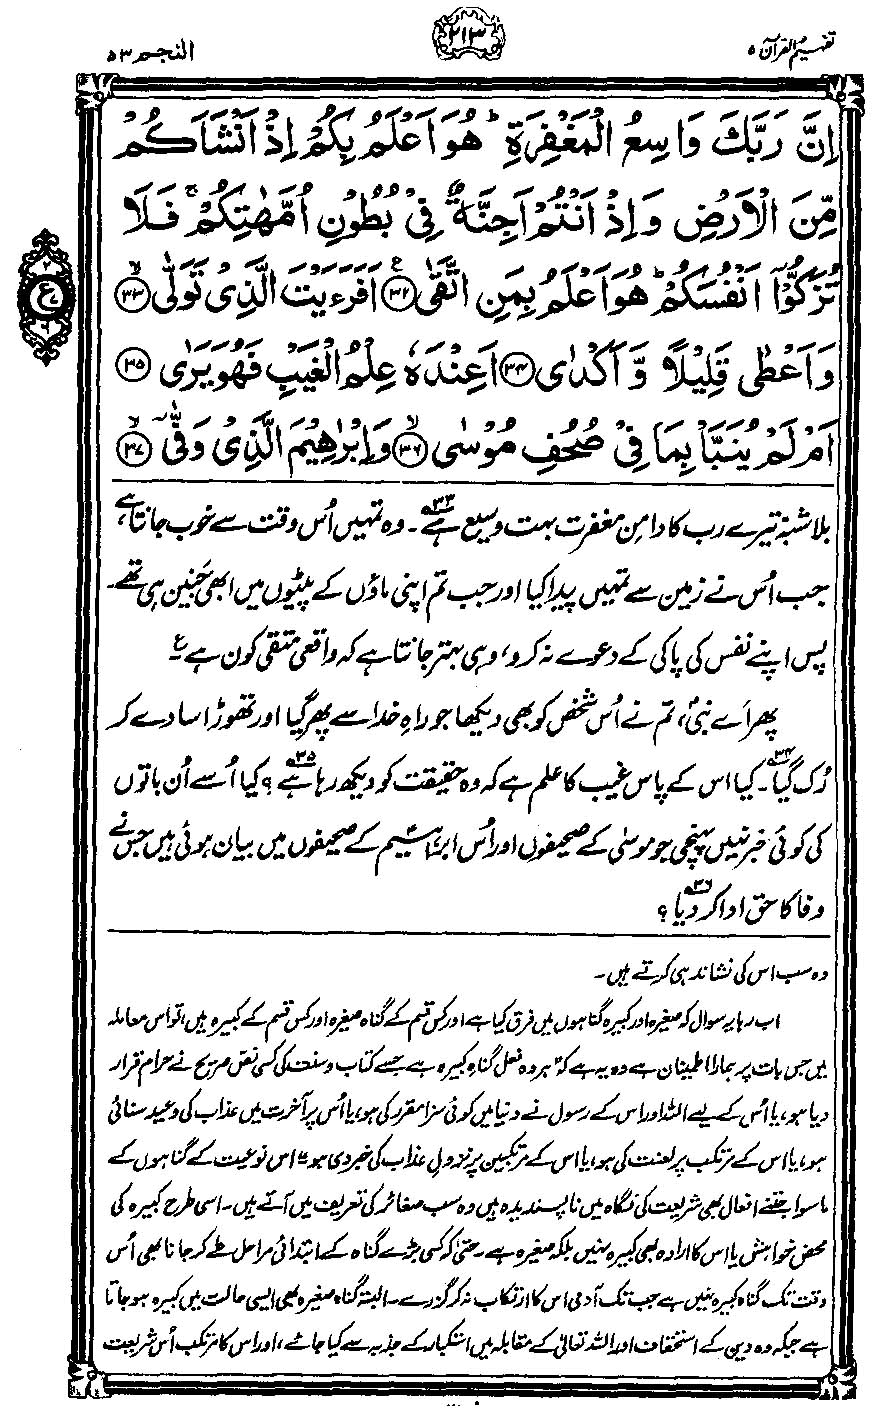 تفہیم القرآن ۵
۲۱۳
النجم ۵۳
اِنَّ رَبَّكَ وَاسِعُ الْمَغْفِرَةِ ؕ هُوَ اَعْلَمُ بِكُمْ اِذْ اَنْشَاَكُمْ
مِّنَ الْاَرْضِ وَاِذْ اَنْتُمْ اَجِنَّةٌ فِيْ بُطُوْنِ اُمَّهٰتِكُمْ ۚ فَلَا
تُزَكُّوْۤا اَنْفُسَكُمْ ؕ هُوَ اَعْلَمُ بِمَنِ اتَّقٰى ﴿۳۲﴾ اَفَرَءَيْتَ الَّذِيْ تَوَلّٰى ﴿۳۳﴾
وَاَعْطٰى قَلِيْلًا وَّاَكْدٰى ﴿۳۴﴾ اَعِنْدَهٗ عِلْمُ الْغَيْبِ فَهُوَ يَرٰى ﴿۳۵﴾
اَمْ لَمْ يُنَبَّاْ بِمَا فِيْ صُحُفِ مُوْسٰى ﴿۳۶﴾ وَاِبْرٰهِيْمَ الَّذِيْ وَفّٰى ﴿۳۷﴾
بلاشبہ تیرے رب کا دامنِ مغفرت بہت وسیع ہے۳۳۔ وہ تمہیں اُس وقت سے خوب جانتا ہے
جب اُس نے زمین سے تمہیں پیدا کیا اور جب تم اپنی ماؤں کے پیٹوں میں ابھی جَنین ہی تھے۔
پس اپنے نفس کی پاکی کے دعوے نہ کرو، وہی بہتر جانتا ہے کہ واقعی متقی کون ہے۔ ع
پھر اَے نبیؐ، تم نے اُس شخص کو بھی دیکھا جو راہِ خدا سے پھر گیا اور تھوڑا سا دے کر
رُک گیا۳۴۔ کیا اس کے پاس غیب کا علم ہے کہ وہ حقیقت کو دیکھ رہا ہے۳۵؟ کیا اُسے اُن باتوں
کی کوئی خبر نہیں پہنچی جو موسیٰ کے صحیفوں اور اُس ابراہیم کے صحیفوں میں بیان ہوئی ہیں جس نے
وفا کا حق ادا کر دیا۳۶؟
وہ سب اس کی نشاندہی کرتے ہیں۔
اب رہا یہ سوال کہ صغیرہ اور کبیرہ گناہوں میں فرق کیا ہے اور کس قسم کے گناہ صغیرہ اور کس قسم کے کبیرہ ہیں، تو اس معاملہ
میں جس بات پر ہمارا اطمینان ہے وہ یہ ہے کہ "ہر وہ فعل گناہِ کبیرہ ہے جسے کتاب و سنت کی کسی نصِ صریح نے حرام قرار
دیا ہو، یا اُس کے لیے اللہ اور اس کے رسول نے دنیا میں کوئی سزا مقرر کی ہو، یا اُس پر آخرت میں عذاب کی وعید سنائی
ہو، یا اس کے مرتکب پر لعنت کی ہو، یا اس کے مرتکبین پر نزولِ عذاب کی خبر دی ہو"۔ اس نوعیت کے گناہوں کے
ماسوا جتنے افعال بھی شریعت کی نگاہ میں ناپسندیدہ ہیں وہ سب صغائر کی تعریف میں آتے ہیں۔ اسی طرح کبیرہ کی
محض خواہش یا اس کا ارادہ بھی کبیرہ نہیں بلکہ صغیرہ ہے۔ حتیٰ کہ کسی بڑے گناہ کے ابتدائی مراحل طے کر جانا بھی اُس
وقت تک گناہ کبیرہ نہیں ہے جب تک آدمی اس کا ارتکاب نہ کر گزرے۔ البتہ گناہ صغیرہ بھی ایسی حالت میں کبیرہ ہو جاتا
ہے جبکہ وہ دین کے استخفاف اور اللہ تعالیٰ کے مقابلہ میں استکبار کے جذبہ سے کیا جائے، اور اس کا مرتکب اُس شریعت